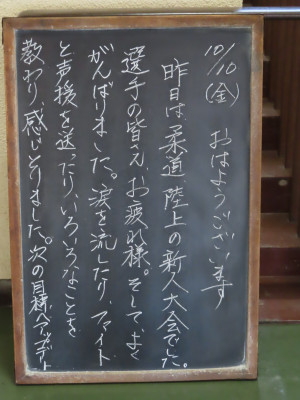 10/10(金) おはようございます
昨日は、柔道 陸上の新人大会でした。
選手の皆さん、お疲れ様。そして、よく
がんばりました。涙を流したり、ファイト
と声援を送ったり、いろいろなことを
教わり、感じとりました。次の目標へアップデート